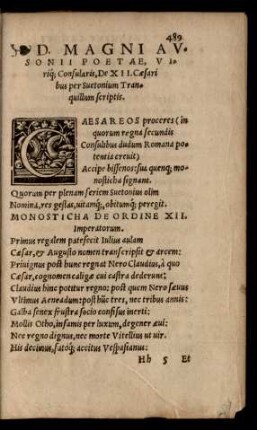 489
D. MAGNI AV-
SONII POETAE, VI-
riq; Consularis, De XII. Cæsari
bus per Suetonium Tran-
quillum scriptis.
CAESAREOS proceres (in
quorum regna secundis
Consulibus dudum Romana po-
tentia crevit)
Accipe bissenos: sua quenq; mo-
nosticha signant.
Quorum per plenam seriem Suetonius olim
Nomina, res gestas, uitamq́;, obitumq́; peregit.
MONOSTICHA DE ORDINE XII.
Imperatorum.
Primus regalem patefecit Iulius aulam
Cæsar, & Augusto nomen transcripsit & arcem:
Priuignus post hunc regnat Nero Claudius, à quo
Cæsar, cognomen caligæ cui castra dederunt:
Claudius hinc potitur regno; post quem Nero sæuus
Vltimus Aeneadum: post hũc tres, nec tribus annis:
Galba senex frustra socio confisus inerti:
Mollis Otho, infamis per luxum, degener æui:
Nec regno dignus, nec morte Vitellius ut uir.
His decimus, satoq́; accitus Vespasianus:
Hh 5 Et